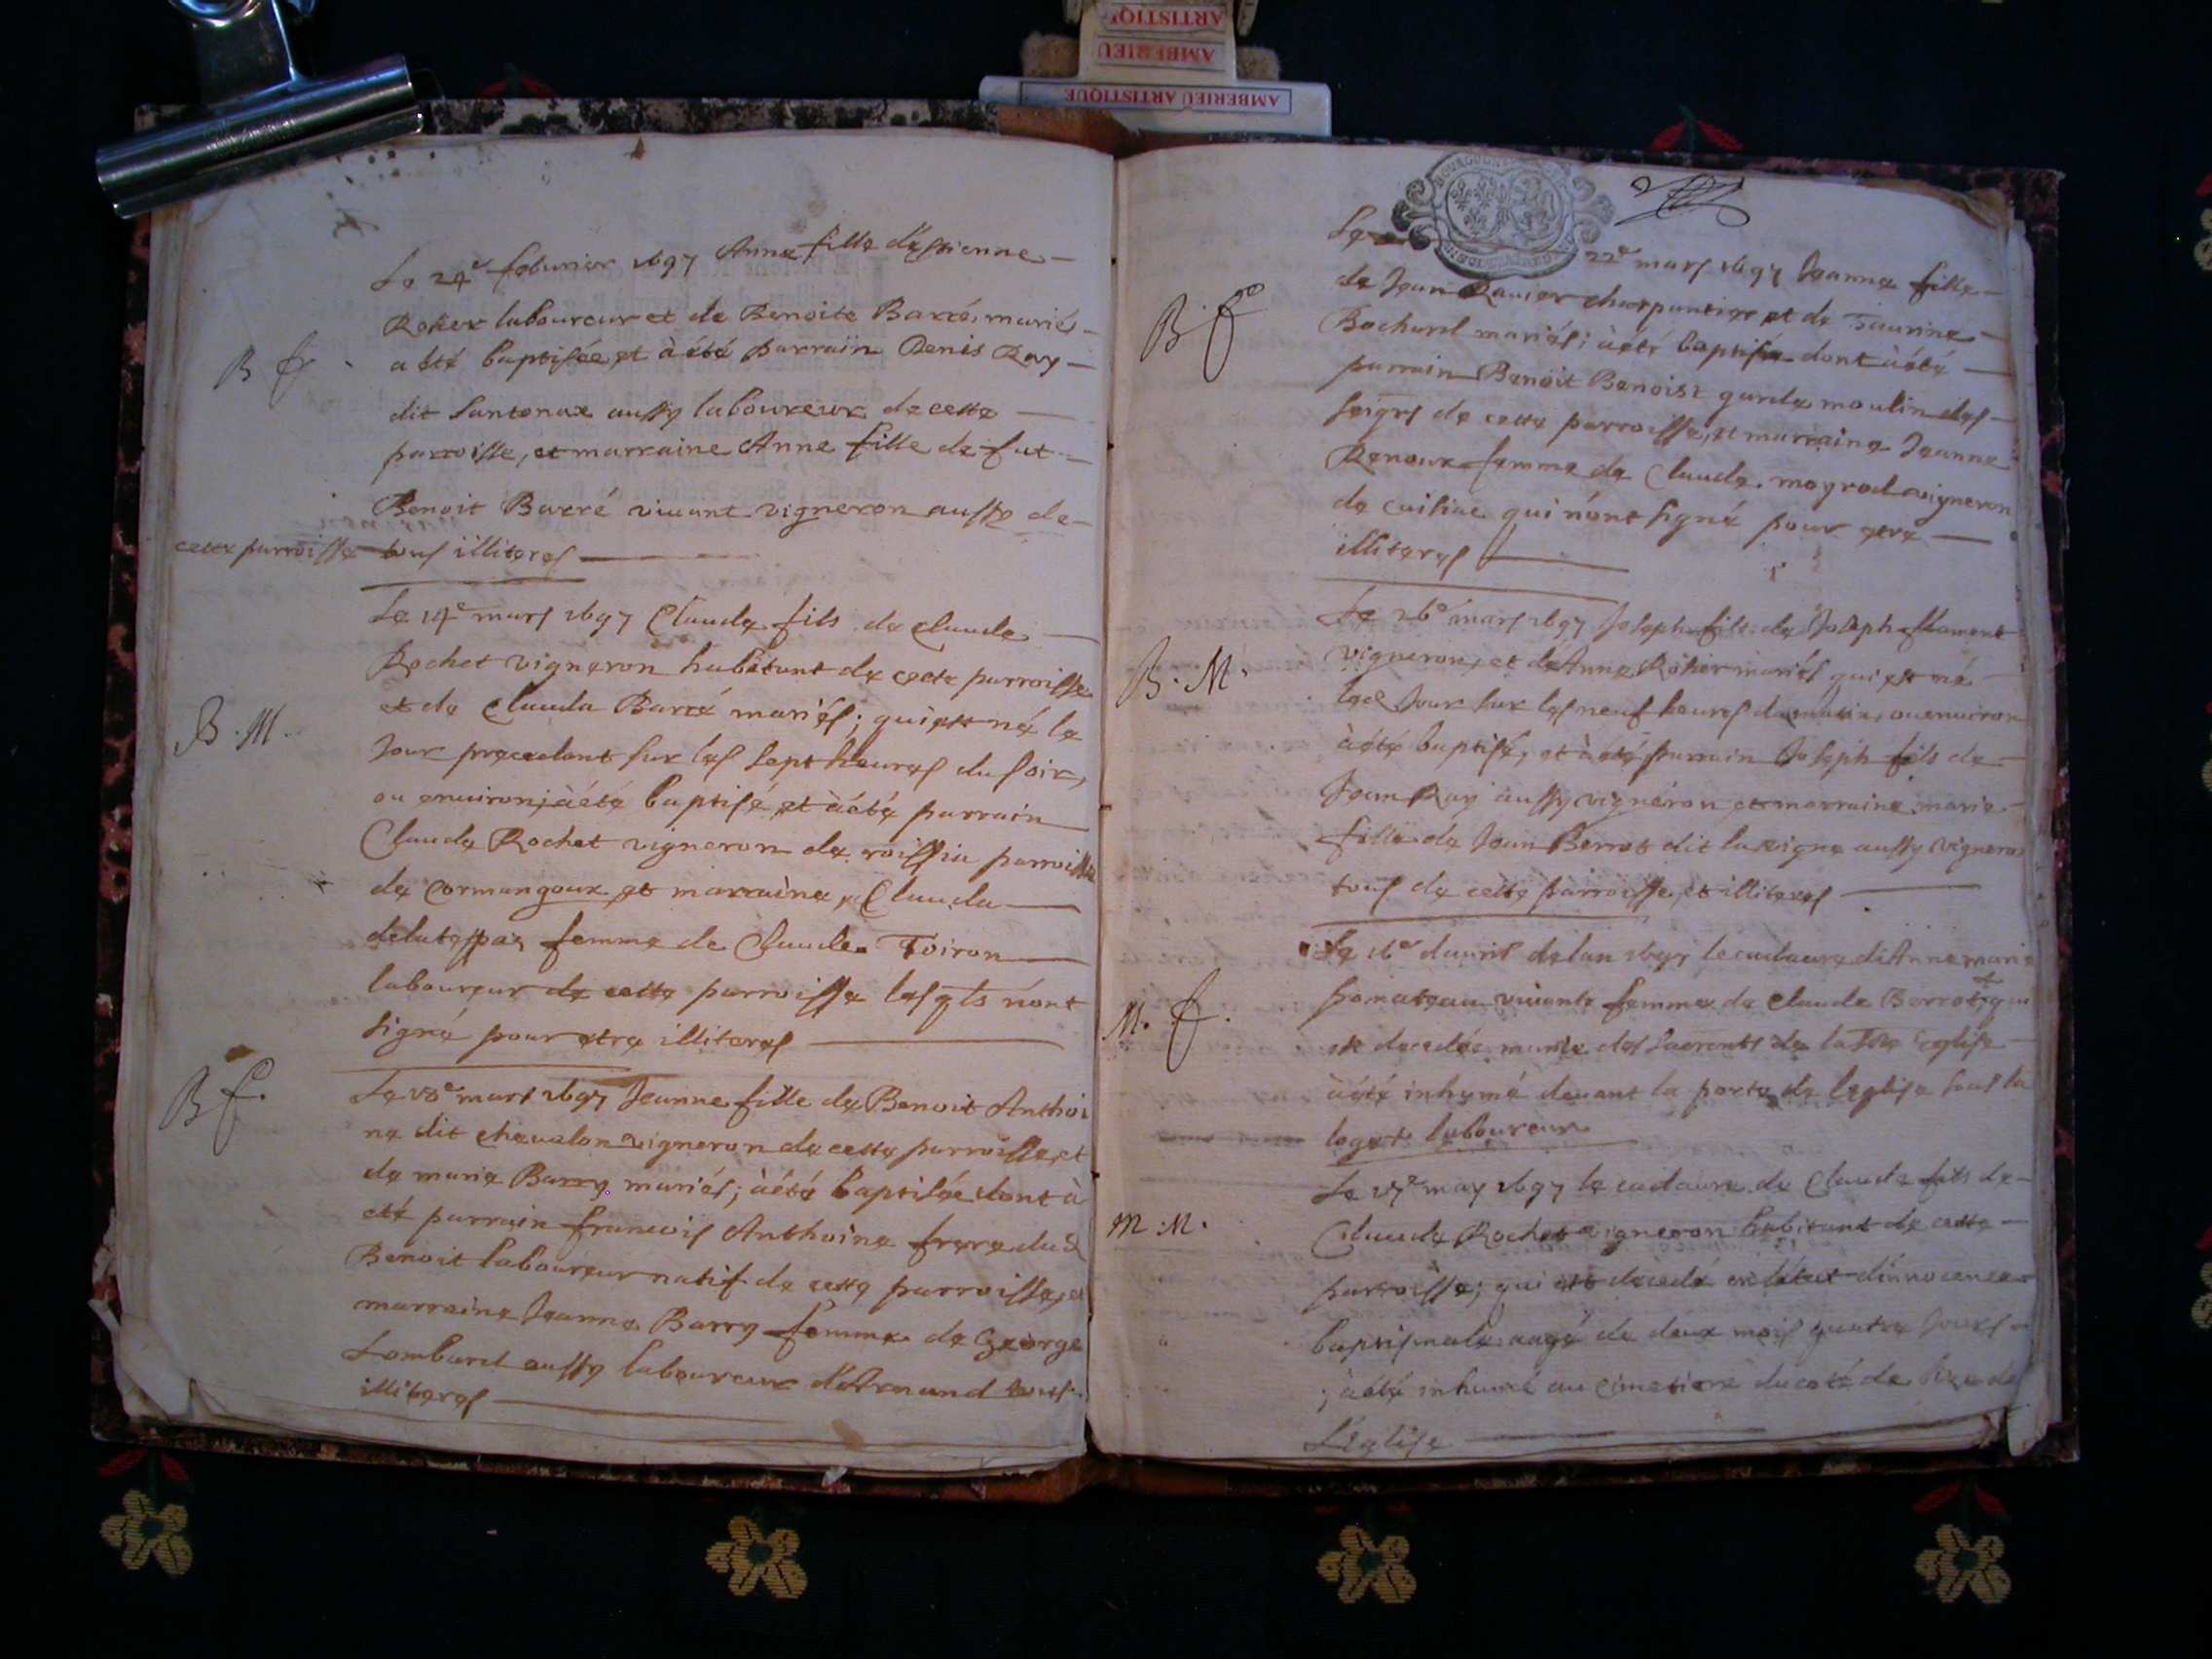 ARTISTIQ
AMBERIEU
AMBERIEU ARTISTIQUE
Le 24e feburier 1697 Anne fille d'Estienne
Roker laboureur et de Benoite Barré mariés
B f
a été baptisée et à été parrain Denis Ray
dit Santonax aussy laboureur de cette
parroisse, et marraine Anne fille de fut
Benoit Barré vivant vigneron aussy de
cette parroisse tous illiteres
Le 14e mars 1697 Claude fils de Claude
Rochet vigneron habitant de cette parroisse
et de Clauda Barré mariés; qui est né le
B. M.
Jour precedent sur les sept heures du soir,
ou environ; à été baptisé et à été parrain
Claude Rochet vigneron de parroisse
de Cormangoux et marraine, Clauda
femme de Claude Toiron
laboureur de cette parroisse lesqls n'ont
signé pour etre illiteres
B f.
Le 18e mars 1697 Jeanne fille de Benoit Anthoi
ne dit chevalon vigneron de cette parroisse, et
de marie Barry mariés; à été baptisée dont à
eté parrain francois Anthoine frere dud
Benoit laboureur natif de cette parroisse, et
marraine Jeanne Barry femme de George
Lombard aussy laboureur d'Armand tous
illiteres
Le
22e mars 1697 Jeanne fille
B. f
de Jean Ravier charpantier et de Taurine
Bochard mariés; à été baptisée dont à été
parrain Benoit Benoist garde moulin des
seigrs de cette parroisse, et marraine Jeanne
Renoux femme de Claude moyrod vigneron
de Cuisiac qui n'ont signé pour etre
illiteres
Le 26e mars 1697 Joseph fils de Joseph flament
B. M.
vigneron, et de Anne Roker mariés qui est né
led Jour sur les neuf heures du matin, ou environ
à été baptisé, et à été parrain Joseph fils de
Jean Ray aussy vigneron et marraine marie
fille de Jean Berrot dit lavigne aussy vigneron
tous de cette parroisse et illiteres
Le 16e d'avril de lan 1697 le cadavre d'Anne marie
M. f.
vivante femme de Claude Berrot qui
est decedée munie des sacrents de la Ste église
à été inhumé devant la porte de leglise sous la
laboureur
Le 17e may 1697 le cadavre de Claude fils de
M. M.
Claude Rochet vigneron habitant de cette
parroisse; qui est decedé en létat d'innocence
baptismale aagé de deux mois quatre Jours
; à été inhumé au cimetiere du coté de de
L'église